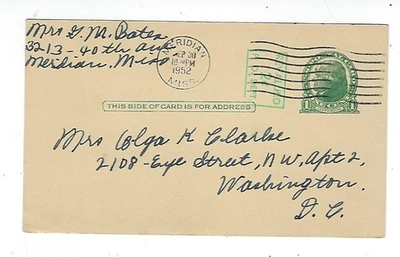 Mrs G. M. Bates
3213-40th Ave
Meridian, Miss
MERIDIAN
SEP 30
PM
1952
MISS.
THIS SIDE OF CARD IS FOR ADDRESS
Mrs Olga K Clarke
2108-Eye Street, N.W, Apt 2,
Washington,
D. C.